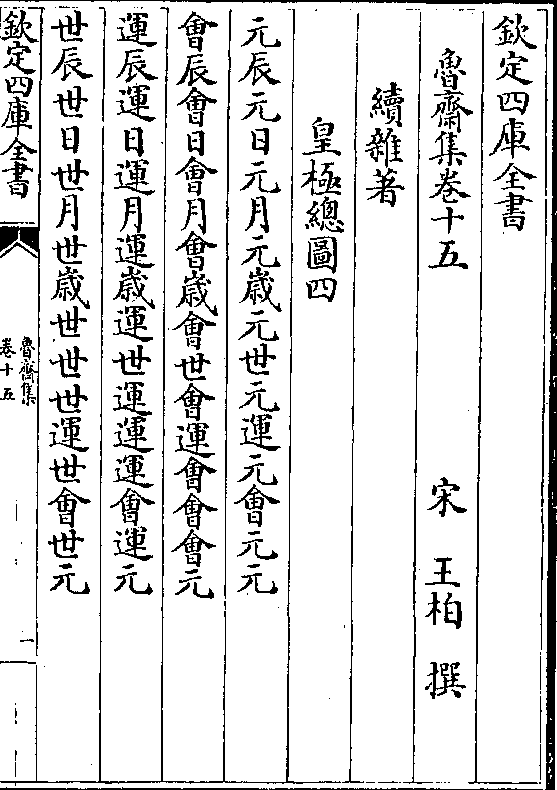 欽定四庫全書
魯齋集卷十五
宋 王柏 撰
續雜著
皇極總圖四
元辰元日元月元歲元世元運元會元元
會辰會日會月會歲會世會運會會會元
運辰運日運月運歲運世運運運會運元
世辰世日世月世歲世世世運世會世元
欽定四庫全書
魯齋集
卷十五
一